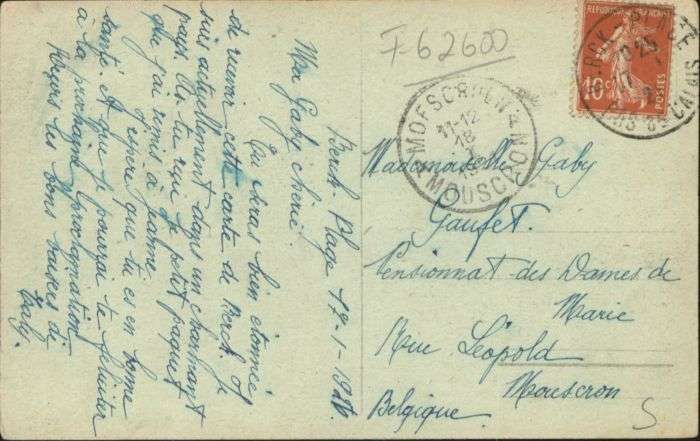 F 62600
Berck-Plage 17-1-1926.
Ma Gaby chérie.
Tu seras bien étonnée
de recevoir cette carte de Berck. Je
suis actuellement dans un charmant
pays. As-tu reçu le petit paquet
que j'ai remis à
J'espère que tu es en bonne
santé. Et que je pourrai te féliciter
à la prochaine proclamation.
Reçois les bons baisers de
Gaby.
Mademoiselle Gaby
Gaufet.
Pensionnat des Dames de
Marie
Rue Léopold
Mouscron
Belgique.
S
10c
POSTES
PAS-DE-CALAIS
MOESCROEN
11-12
18
MOUSCRON